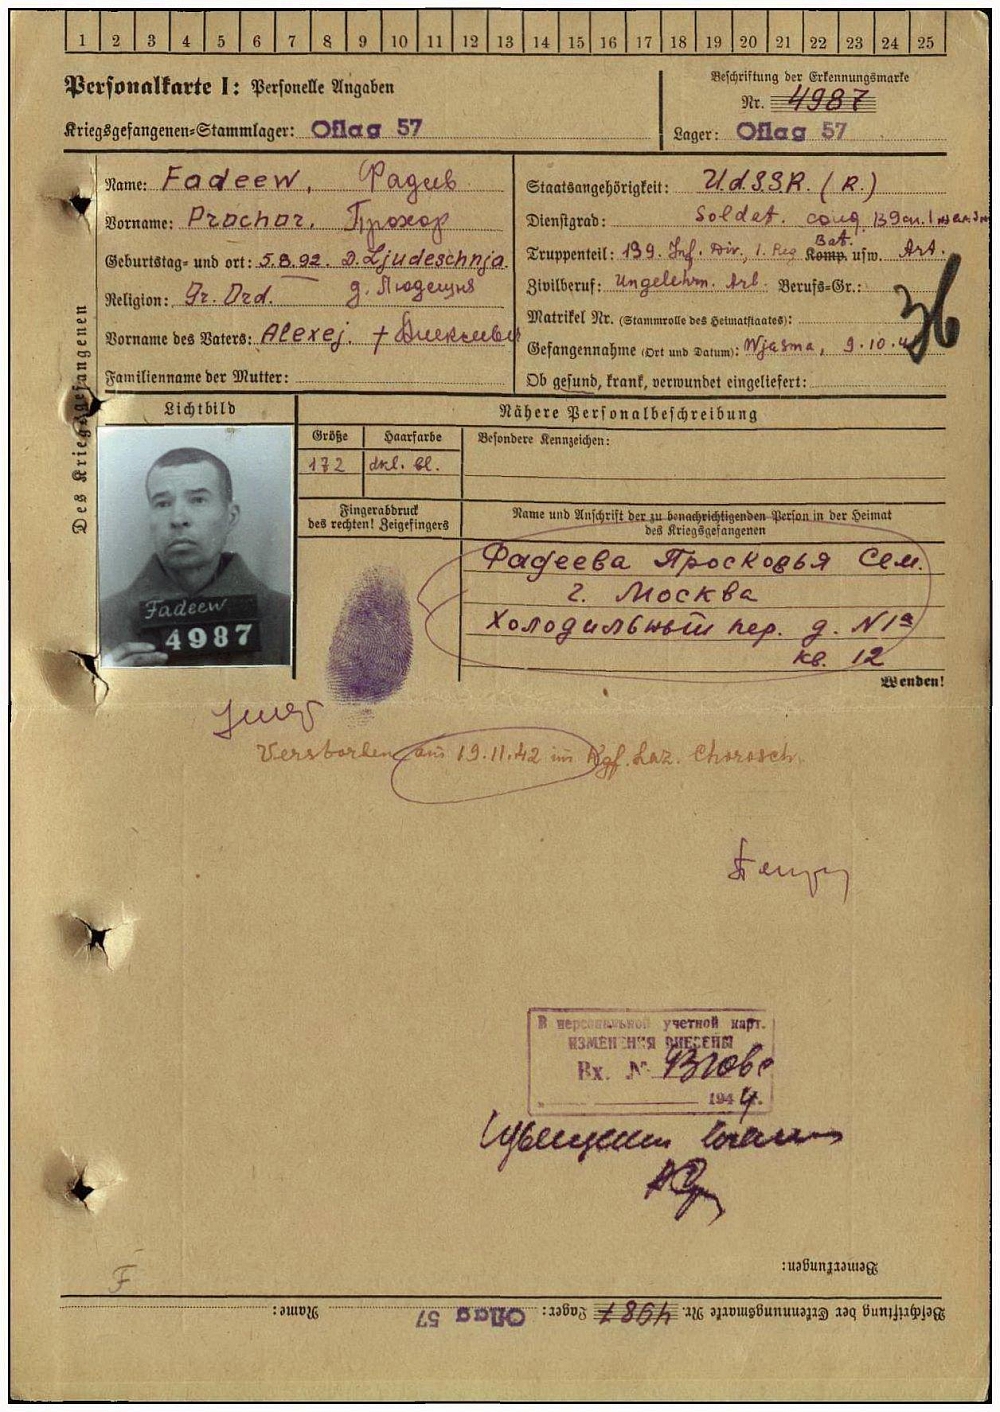 1 2 3 4 5 6 7 8 9 10 11 12 13 14 15 16 17 18 19 20 21 22 23 24 25
Personalkarte I: Personelle Angaben
Kriegsgefangenen-Stammlager: Oflag 57
Beschriftung der Erkennungsmarke
Nr. 4987
Lager: Oflag 57
Des Kriegsgefangenen
Name: Fadeew, Фадеев
Vorname: Prochor, Прохор
Geburtstag- und ort: 5.8.92. D. Ljudeschnja
Religion: Gr. Ord. д. Людешня
Vorname des Vaters: Alexej. + Алексеевич
Familienname der Mutter:
Staatsangehörigkeit: U.d.S.S.R. (R.)
Dienstgrad: Soldat.
Truppenteil: 139. Inf. Div., 1. Reg Bat. Komp. usw. Art.
Zivilberuf: Ungelehrn. Arb. Berufs-Gr.:
Matrikel Nr. (Stammrolle des Heimatstaates):
Gefangennahme (Ort und Datum): Wjasma, 9.10.4
36
Ob gesund, krank, verwundet eingeliefert:
Lichtbild
Nähere Personalbeschreibung
Größe Haarfarbe Besondere Kennzeichen:
172 dkl. bl.
Fingerabdruck
des rechten! Zeigefingers
Name und Anschrift der zu benachrichtigenden Person in der Heimat
des Kriegsgefangenen
Фадеева Просковья Сем.
г. Москва
Холодильный пер. д. N 1а
кв. 12
Fadeew
4987
Wenden!
Verstorben am 19.11.42 im Kgf. Laz. Chorosch.
В персональной учетной карт.
ИЗМЕНЕНИЯ ВНЕСЕНЫ
Вх. №
194 г.
F
Bemerkungen:
Beschriftung der Erkennungsmarke Nr. 4987 Lager: Oflag 57 Name: